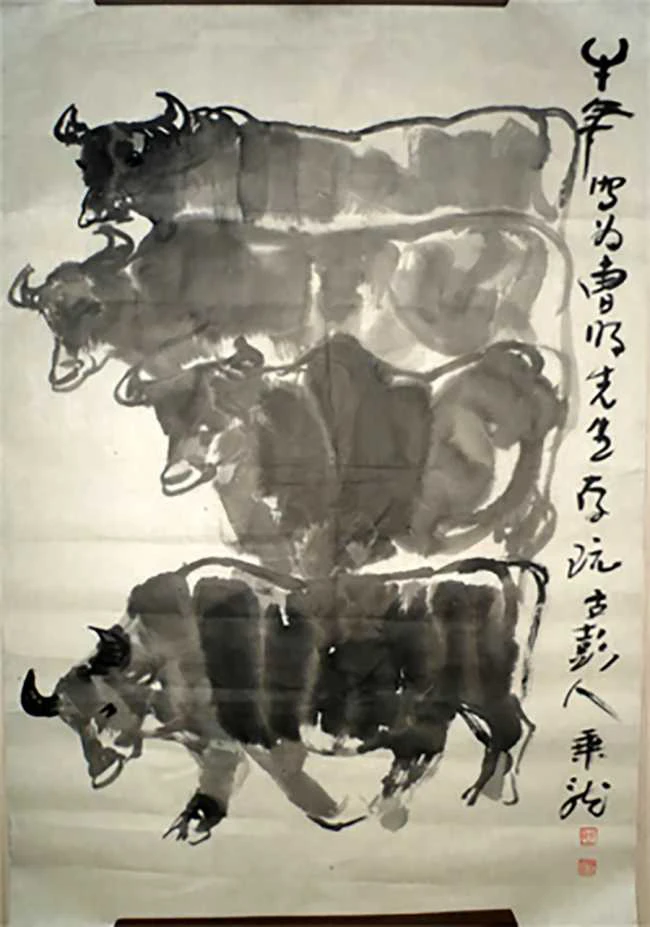 牛年写为曹明先生存玩古彭人乘龙